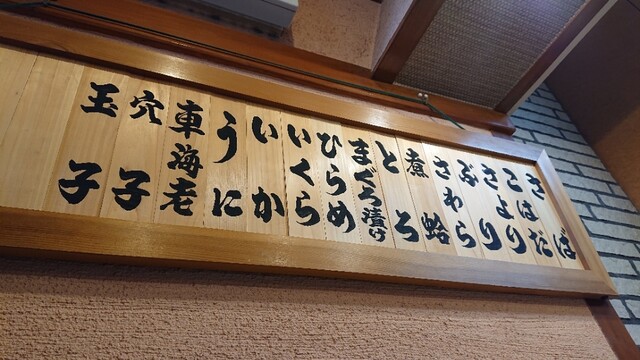 さば
こはだ
さより
ぶり
さわら
煮蛤
とろ
まぐろ漬け
ひらめ
いくら
いか
うに
車海老
穴子
玉子